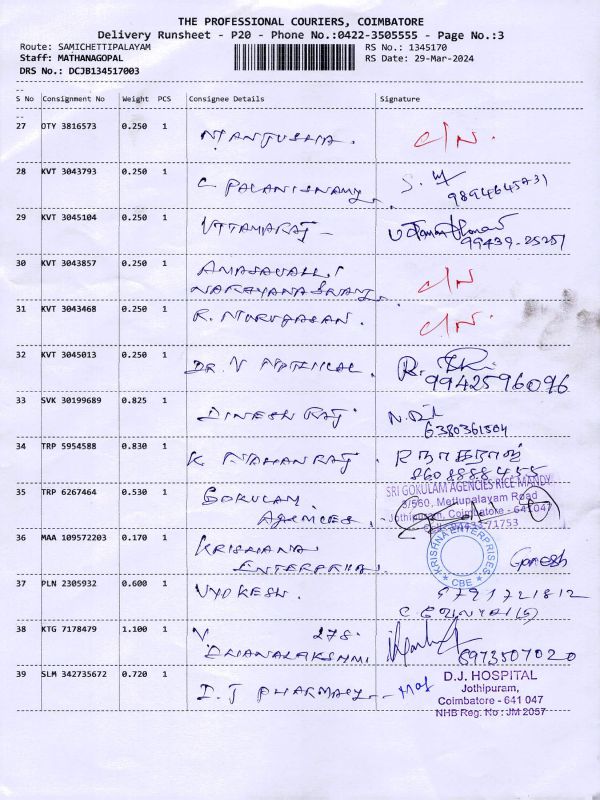 THE PROFESSIONAL COURIERS, COIMBATORE
Delivery Runsheet - P20 - Phone No.:0422-3505555 - Page No.:3
Route: SAMICHETTIPALAYAM
RS No.: 1345170
Staff: MATHANAGOPAL
RS Date: 29-Mar-2024
DRS No.: DCJB134517003
S No Consignment No Weight PCS Consignee Details Signature
27 OTY 3816573 0.250 1 C/N.
28 KVT 3043793 0.250 1 C PALANISWAMY
9894645731
29 KVT 3045104 0.250 1 UTTAMARAJ
99439-25251
30 KVT 3043857 0.250 1 C/N
NARAYANASWAMY
31 KVT 3043468 0.250 1 R. MURUGASAN. C/N.
32 KVT 3045013 0.250 1 DR. N
9942596096
33 SVK 30199689 0.825 1 DINESH RAJ
6380361504
34 TRP 5954588 0.830 1 K MAHANRAJ
8608888455
35 TRP 6267464 0.530 1 GOKULAM
AGENCIES
SRI GORULAM AGENCIES RICE MANDY
3/560, Mettupalayam Road
Jothipuram, Coimbatore - 641047
36 MAA 109572203 0.170 1 KRISHANA
ENTERPRISE
KRISHNA ENTERPRISES
CBE
Ganesh
37 PLN 2305932 0.600 1 VYOKESH. 9791721812
38 KTG 7178479 1.100 1 V 278.
DHANALAKSHMI 6973507020
39 SLM 342735672 0.720 1 D. J PHARMACY
D.J. HOSPITAL
Jothipuram,
Coimbatore - 641 047
NHB Reg. No : JM 2057